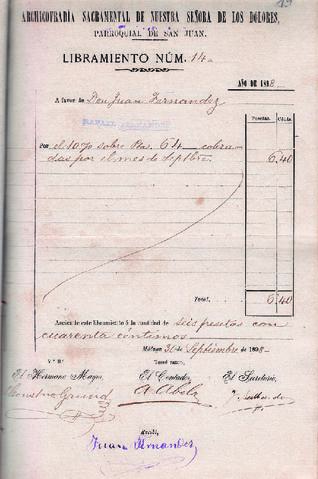 19
ARCHICOFRADÍA SACRAMENTAL DE NUESTRA SEÑORA DE LOS DOLORES,
PARROQUIAL DE SAN JUAN.
LIBRAMIENTO NÚM. 14
AÑO DE 1898
A favor de Don Juan Fernandez
Pesetas. Cénts.
Por el 10% sobre Pta. 64 cobra-
das por el mes de Septbre. 6,40
Total. 6,40
Asciende este libramiento á la cantidad de seis pesetas con
cuarenta céntimos
Málaga 30 de Septiembre de 1898
V.º B.º Tomé razón,
El Hermano Mayor, El Contador, El Secretario,
A. Abela
Recibí,
Juan Fernandez